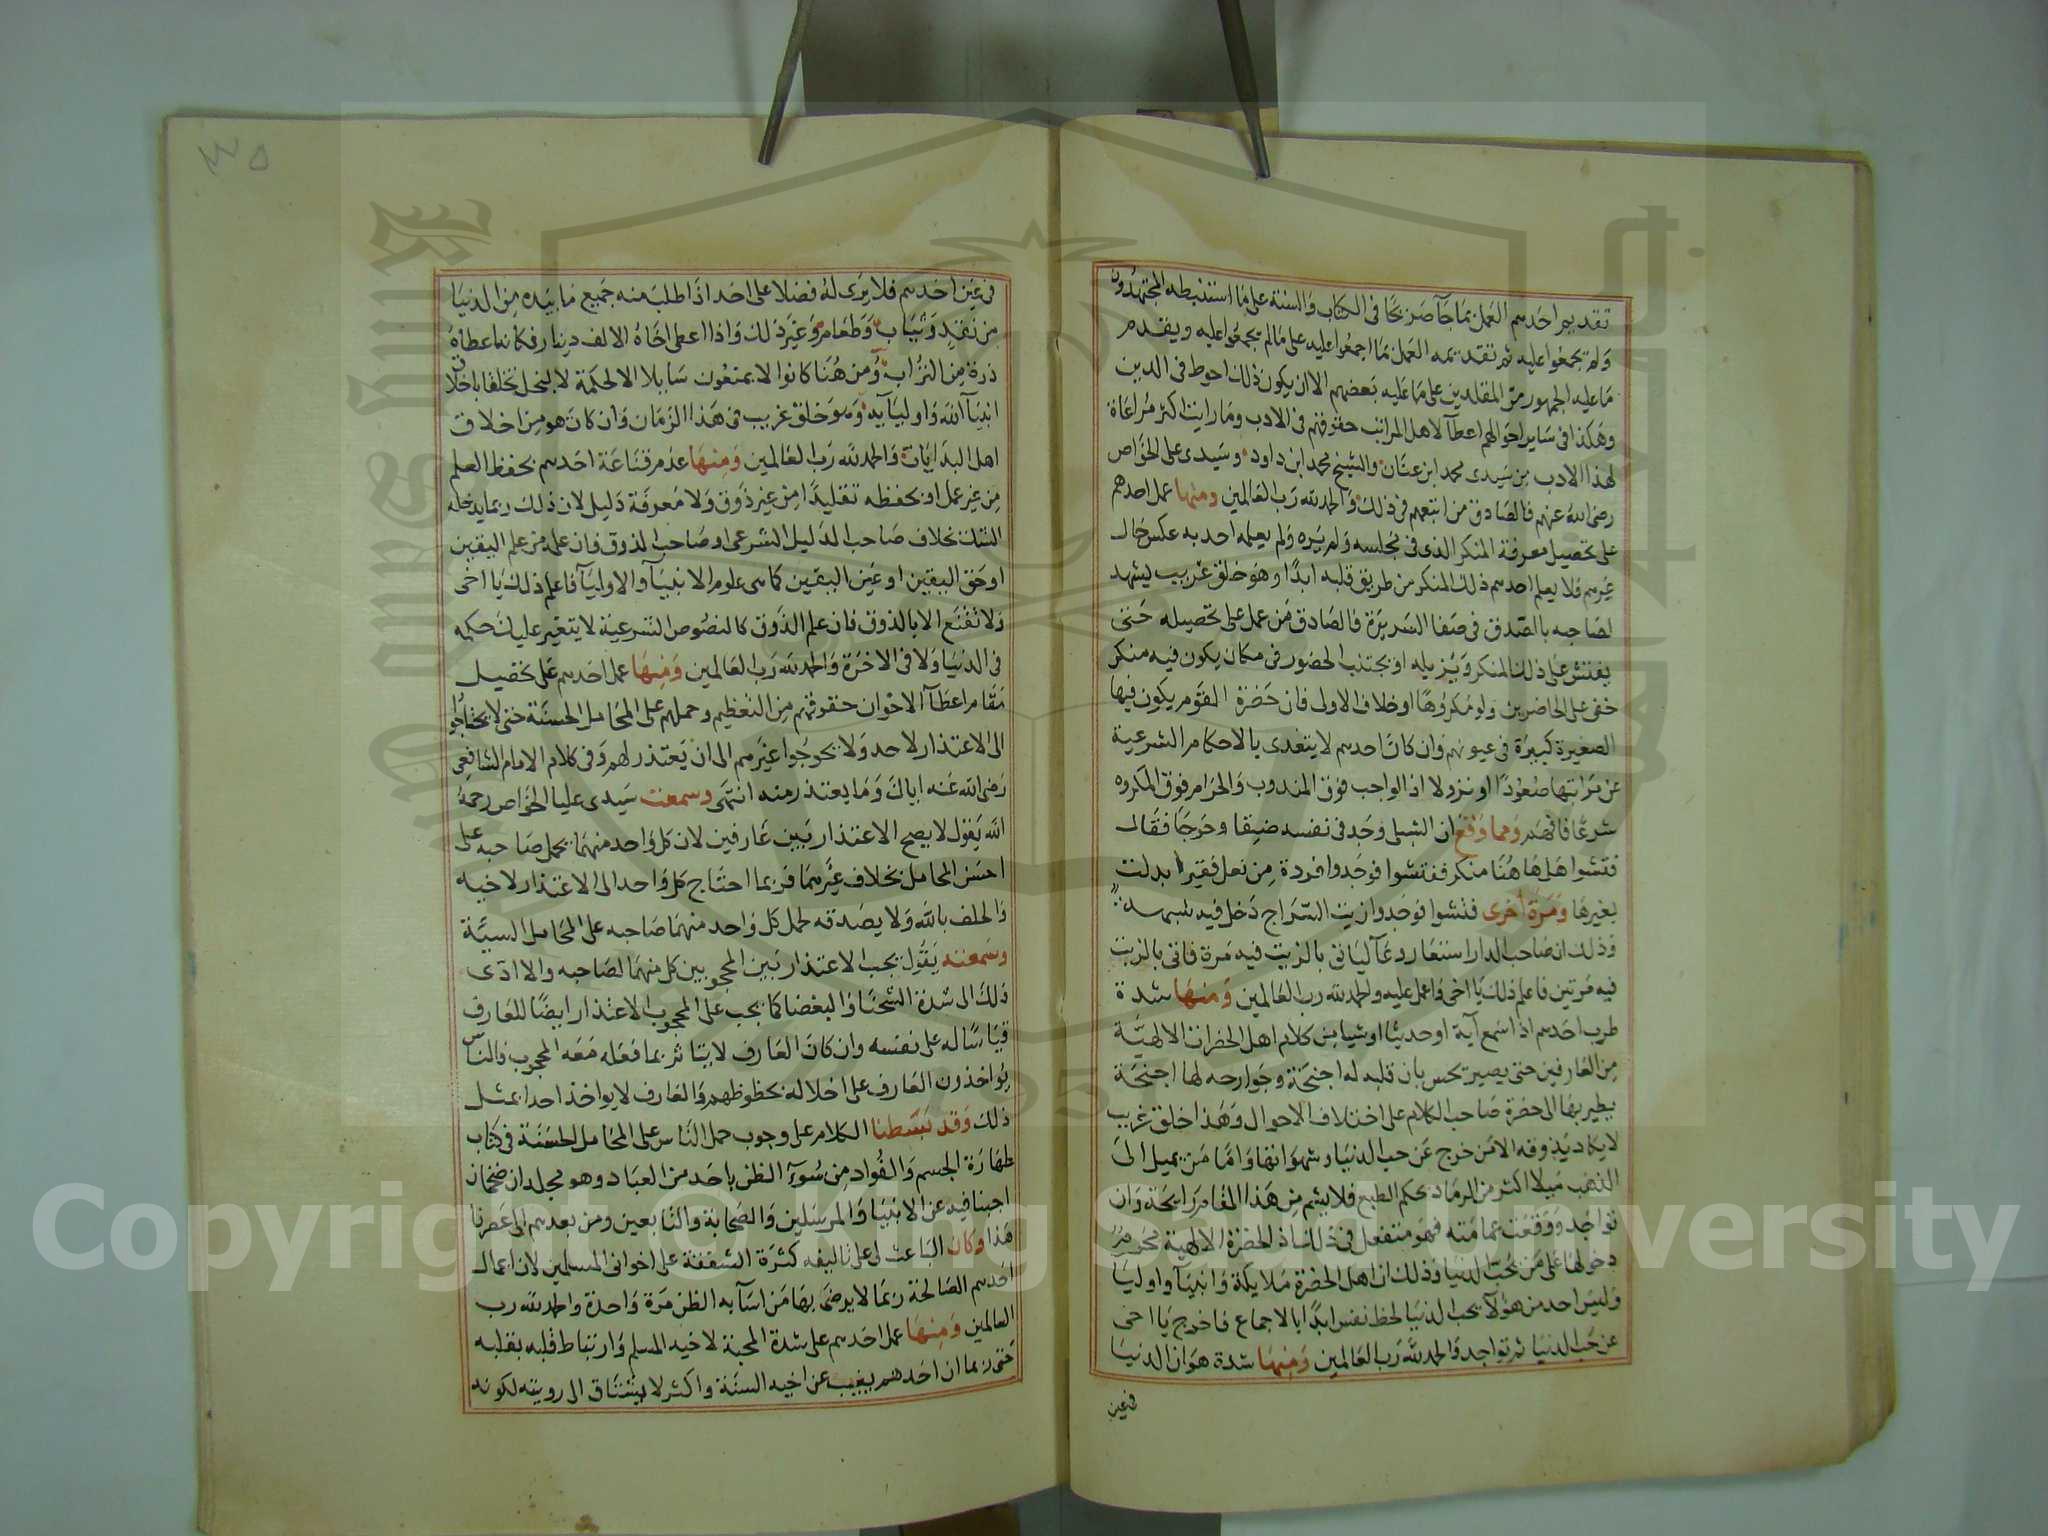 تقديم احدهم العمل بما جآ صريحا فى الكتاب والسنة على ما استنبطه المجتهدون
ولم يجمعوا عليه ثم تقديمه العمل بما اجمعوا عليه على مالم يجمعوا عليه ويقدم
ما عليه الجمهور من المقلدين على ما عليه بعضهم الا ان يكون ذلك احوط فى الدين
وهكذا فى ساير احوالهم اعطآ لاهل المراتب حقوقهم فى الادب وما رايت اكثر مراعاة
لهذا الادب من سيدى محمد ابن عنان والشيخ محمد ابن داود وسيدى على الخواص
رضى الله عنهم فالصادق من اتبعهم فى ذلك والحمد لله رب العالمين ومنها عمل احدهم
على تحصيل معرفة المنكر الذى فى مجلسه ولم يره ولم يعلمه احد به عكس حال
غيرهم فلا يعلم احدهم ذلك المنكر من طريق قلبه ابدا وهو خلق غريب يشهد
لصاحبه بالصدق فى صفا السريرة فالصادق من عمل على تحصيله حتى
يفتش على ذلك المنكر ويزيله او يجتنب الحضور فى مكان يكون فيه منكر
خفى على الحاضرين ولو مكروها او خلاف الاولى فان حضرة القوم يكون فيها
الصغيرة كبيرة فى عيونهم وان كان احدهم لا يتعدى بالاحكام الشرعية
عن مراتبها صعودا او نزولا اذ الواجب فوق المندوب والحرام فوق المكروه
شرعا فافهم ومما وقع ان الشبلى وجد فى نفسه ضيقا وحرجا فقال
فتشوا هل هاهنا منكر ففتشوا فوجدوا فردة من نعل فقير ابدلت
بغيرها ومرة اخرى فتشوا فوجدوا زيت السراج دخل فيه شبهه
وذلك ان صاحب الدار استعار وعآ لياتى بالزيت فيه مرة فاتى بالزيت
فيه مرتين فاعلم ذلك يا اخى واعمل عليه والحمد لله رب العالمين ومنها شدة
طرب احدهم اذا سمع آية او حديثا او شيا من كلام اهل الحضرات الالهية
من العارفين حتى يصير يحس بان قلبه له اجنحة وجوارحه لها اجنحة
يطير بها الى حضرة صاحب الكلام على اختلاف الاحوال وهذا خلق غريب
لا يكاد يذوقه الا من خرج عن حب الدنيا وشهواتها واما من يميل الى
الذهب ميلا اكثر من الرماد بحكم الطبع فلا يشم من هذا المقام رايحة وان
تواجد ووقعت عمامته فهو متفعل فى ذلك اذ الحضرة الالهية محرم
دخولها على من يحب الدنيا وذلك ان اهل الحضرة ملايكة وانبيآ واوليا
وليس احد من هؤلآ يحب الدنيا لحظ نفس ابدا بالاجماع فاخرج يا اخى
عن حب الدنيا ثم تواجد والحمد لله رب العالمين ومنها شدة هوان الدنيا
فى عين
٣٥
فى عين احدهم فلا يرى له فضلا على احد اذا طلب منه جميع ما بيده من الدنيا
من نقد وثياب وطعام وغير ذلك واذا اعطى اخاه الالف دينار فكانما اعطاه
ذرة من التراب ومن هنا كانوا لا يمنعون سايلا الا لحكمة لا لبخل تخلقا باخلاق
انبيآ الله واوليآيه وهو خلق غريب فى هذا الزمان وان كان هو من اخلاق
اهل البدايات والحمد لله رب العالمين ومنها عدم قناعة احدهم بحفظ العلم
من غير عمل او بحفظه تقليدا من غير ذوق ولا معرفة دليل لان ذلك ربما يدخله
الشك بخلاف صاحب الدليل الشرعى او صاحب الذوق فان علمه من علم اليقين
او حق اليقين او عين اليقين كما هى علوم الانبيآ والاوليآ فاعلم ذلك يا اخى
ولا تقنع الا بالذوق فان علم الذوق كالنصوص الشرعية لا يتغير عليك حكمه
فى الدنيا ولا فى الاخرة والحمد لله رب العالمين ومنها عمل احدهم على تحصيل
مقام اعطآ الاخوان حقوقهم من التعظيم وحملهم على المحامل الحسنة حتى لا يحتاجوا
الى الاعتذار لاحد ولا يحوجوا غيرهم الى ان يعتذر لهم وفى كلام الامام الشافعى
رضى الله عنه اياك وما يعتذر منه انتهى وسمعت سيدى عليا الخواص رحمه
الله يقول لا يصح الاعتذار بين عارفين لان كل واحد منهما يحمل صاحبه على
احسن المحامل بخلاف غيرهما فربما احتاج كل واحد الى الاعتذار لاخيه
والحلف بالله ولا يصدقه لحمل كل واحد منهما صاحبه على المحامل السيئة
وسمعته يقول يجب الاعتذار بين المحجوبين كل منهما لصاحبه والا ادى
ذلك الى شدة الشحنا والبغضا كما يجب على المحجوب الاعتذار ايضا للعارف
قياسا له على نفسه وان كان العارف لا يتاثر بما فعله معه المحجوب فالناس
يؤاخذون العارف على اخلاله بحظوظهم والعارف لا يواخذ احدا بمثل
ذلك وقد بسطنا الكلام على وجوب حمل الناس على المحامل الحسنة فى كتاب
طهارة الجسم والفواد من سوء الظن باحد من العباد وهو مجلدان ضخمان
اجبنا فيه عن الانبيا والمرسلين والصحابة والتابعين ومن بعدهم الى عصرنا
هذا وكان الباعث لى على تاليفه كثرة الشفقة على اخوانى المسلمين لان اعمال
احدهم الصالحة ربما لا يرضى بها من اسآ به الظن مرة واحدة والحمد لله رب
العالمين ومنها عمل احدهم على شدة المحبة لاخيه المسلم وارتباط قلبه بقلبه
حتى ربما ان احدهم يغيب عن اخيه السنة واكثر لا يشتاق الى رويته لكونه
Copyright © King Saud University
1957